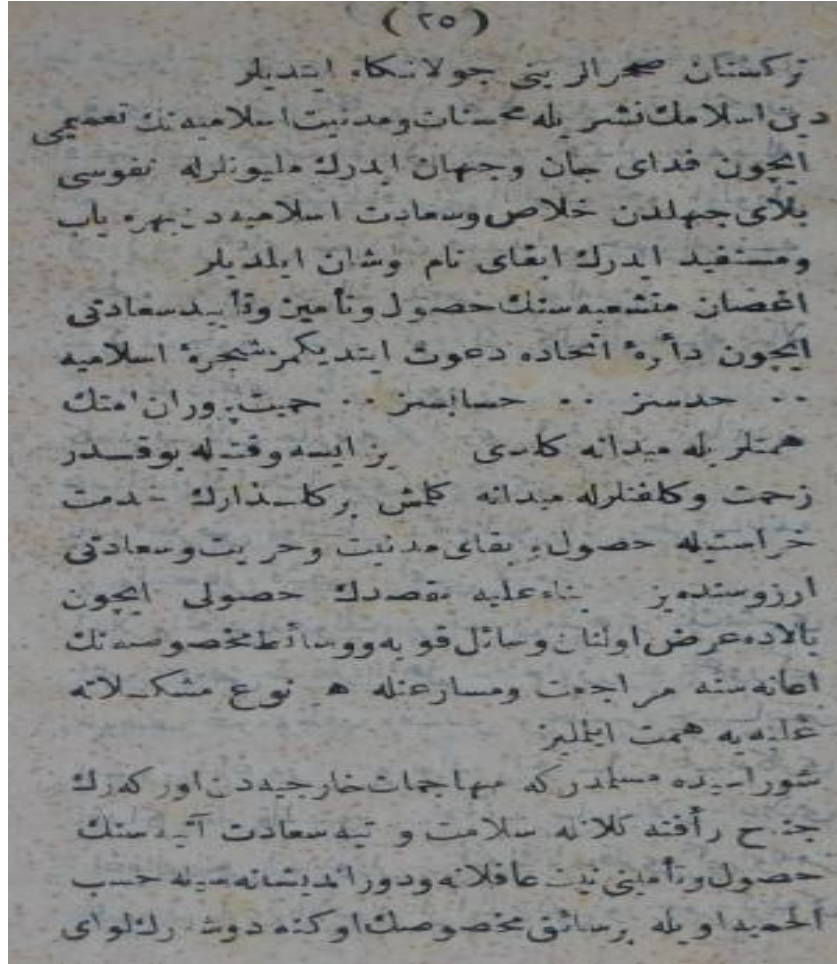 (٢٥)
تركستان صحرالرينی جولانكاه ايتديلر
دين اسلامك نشريله محسنات ومدنيت اسلاميه نك تعميمی
ايچون فدای جان وجهان ايدرك مليونلرله نفوسی
بلای جهلدن خلاص وسعادت اسلاميه دن بهره ياب
ومستفيد ايدرك ابقای نام وشان ايلديلر
اغصان متشعبه سنك حصول وتأمين وتأييد سعادتی
ايچون دائرهٔ اتحاده دعوت ايتديكمز شجرهٔ اسلاميه
٠٠ حدسز ٠٠ حسابسز ٠٠ حميت پروران امتك
همتلريله ميدانه كلدی بز ايسه وقتيله بوقدر
زحمت وكلفتلرله ميدانه كلمش بر كلـذارك خدمت
حراستيله حصول وبقای مدنيت وحريت وسعادتی
ارزوسنده يز بناء عليه مقصدك حصولی ايچون
بالاده عرض اولنان وسائل قويه ووسائط مخصوصه نك
اعانه سنه مراجعت ومسارعتله هر نوع مشكلاته
غلبه يه همت ايلمليز
شوراسيده مسلمدركه مهاجمات خارجيه دن اوركه رك
جناح رأفته سلامت و سعادت آتيه سنك
حصول وتأمينی نيت عاقلانه ودورانديشانه سيله حسب
الحميه اويله برسائق مخصوصك اوكنه دوشه رك لوای